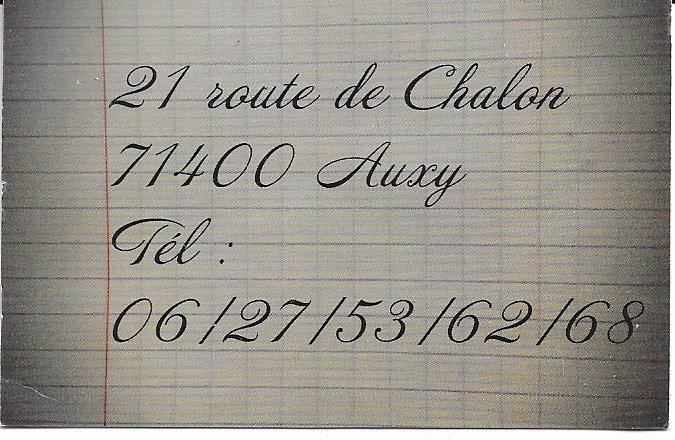 21 route de Chalon
71400 Auxy
Tél :
06/27/53/62/68